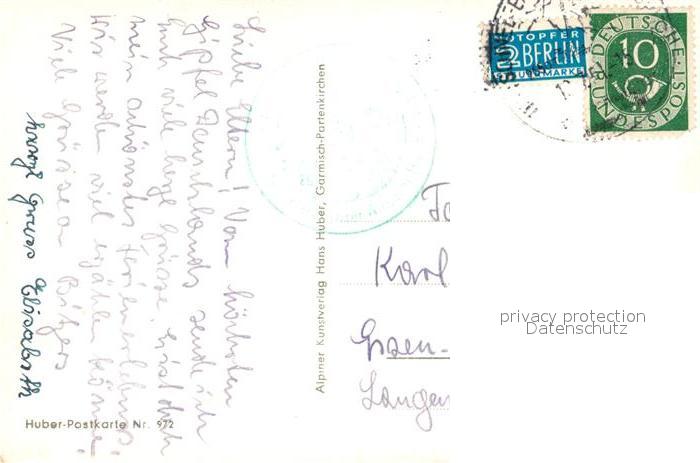 Liebe Eltern! Vom höchsten
Gipfel Deutschlands sende ich
Euch viele herzl. Grüsse, ist doch
mein schönstes Ferienerlebnis.
Wir werden viel erzählen können.
Viele Grüsse
herzl. Gruss Elisabeth
Huber-Postkarte Nr. 972
Alpiner Kunstverlag Hans Huber, Garmisch-Partenkirchen
NOTOPFER
2 BERLIN
STEUERMARKE
DEUTSCHE
10
BUNDESPOST
Karl
Essen-
Langen
privacy protection
Datenschutz